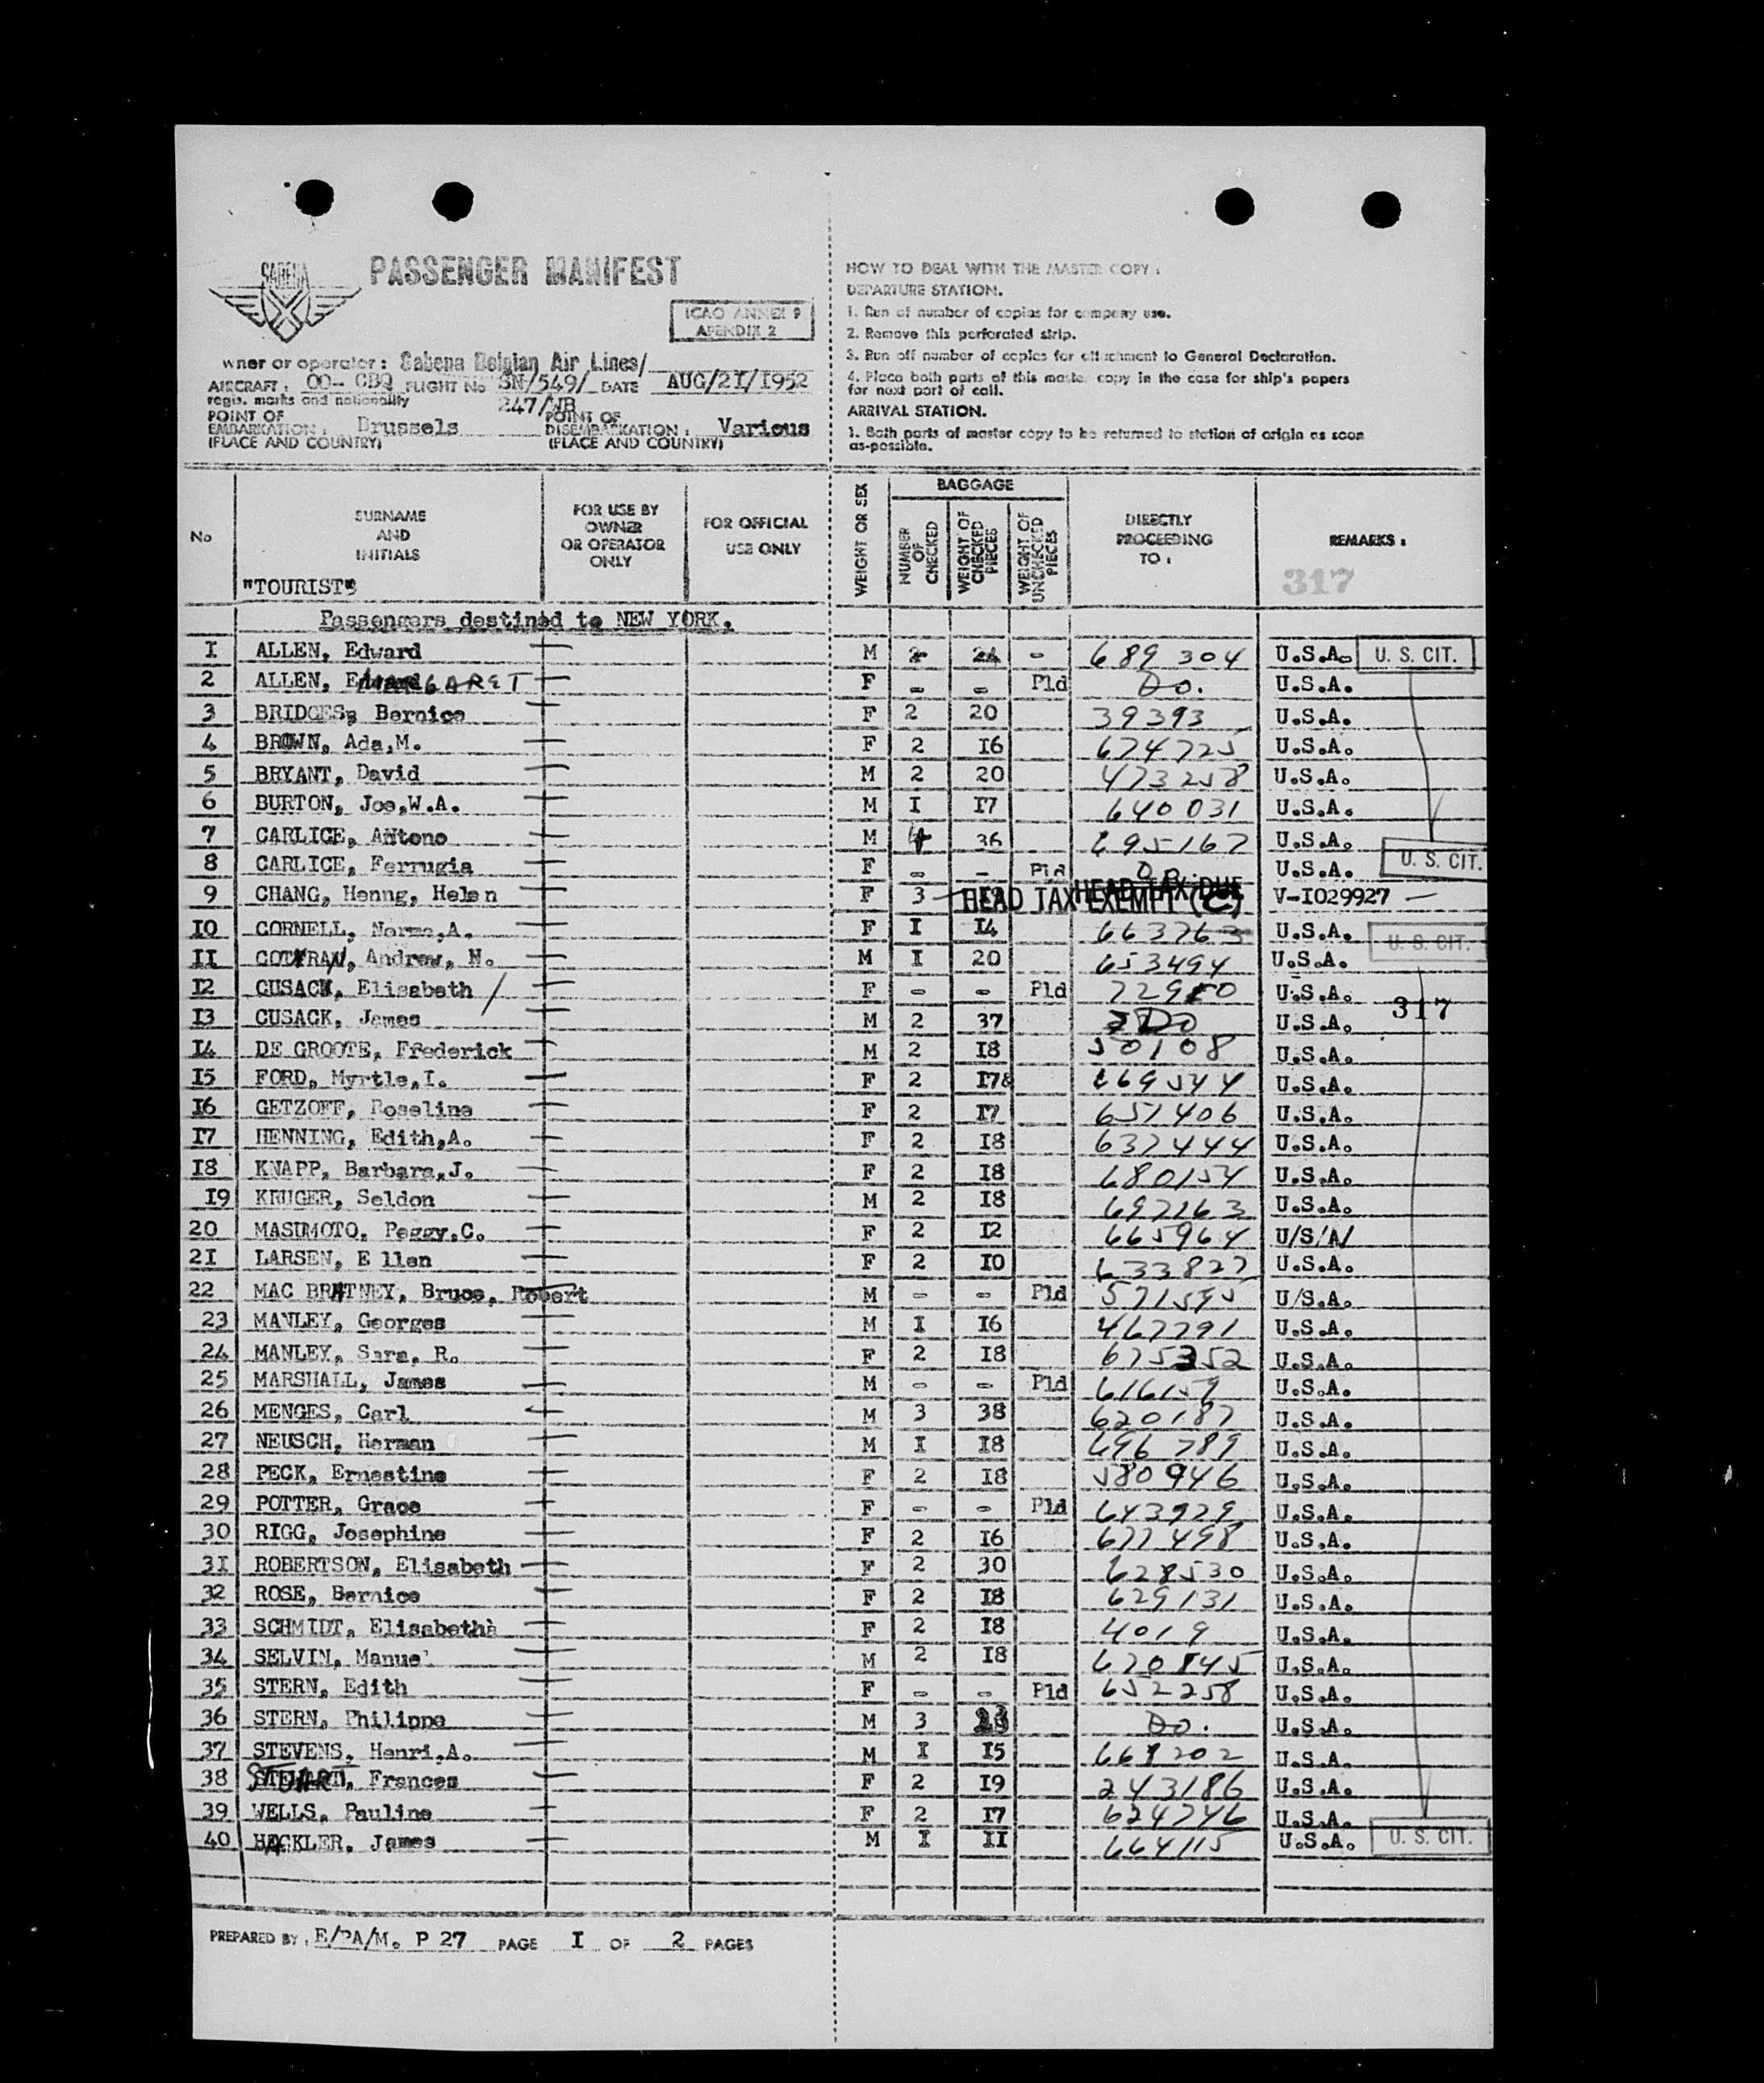 SABENA
PASSENGER MANIFEST
ICAO ANNEX 9
APENDIX 2
wner or operator: Sabena Belgian Air Lines/
AIRCRAFT: OO-CBQ FLIGHT No SN/549/ DATE AUG/2I/I952
regis. marks and nationality 247/WB
POINT OF EMBARKATION: Brussels POINT OF DISEMBARKATION: Various
(PLACE AND COUNTRY) (PLACE AND COUNTRY)
HOW TO DEAL WITH THE MASTER COPY:
DEPARTURE STATION.
1. Run of number of copies for company use.
2. Remove this perforated strip.
3. Run off number of copies for attachment to General Declaration.
4. Place both parts of this master copy in the case for ship's papers
for next port of call.
ARRIVAL STATION.
1. Both parts of master copy to be returned to station of origin as soon
as-possible.
No SURNAME AND INITIALS FOR USE BY OWNER OR OPERATOR ONLY FOR OFFICIAL USE ONLY WEIGHT OR SEX BAGGAGE NUMBER OF CHECKED WEIGHT OF CHECKED PIECES WEIGHT OF UNCHECKED PIECES DIRECTLY PROCEEDING TO: REMARKS:
"TOURIST" 317
Passengers destined to NEW YORK.
I ALLEN, Edward M 2 24 - 689 304 U.S.A. U. S. CIT.
2 ALLEN, MARGARET F - - Pld Do. U.S.A.
3 BRIDGES, Bernice F 2 20 39393 U.S.A.
4 BROWN, Ada,M. F 2 I6 674725 U.S.A.
5 BRYANT, David M 2 20 473258 U.S.A.
6 BURTON, Joe,W.A. M I I7 640 031 U.S.A.
7 CARLICE, Antono M 4 36 695167 U.S.A.
8 CARLICE, Ferrugia F - - Pld Do U.S.A. U. S. CIT.
9 CHANG, Henng, Helen F 3 HEAD TAX EXEMPT (C) HEAD TAX DUE V-I029927
I0 CORNELL, Norma,A. F I I4 663763 U.S.A. U. S. CIT.
II COTHRAN, Andrew, N. M I 20 653494 U.S.A.
I2 CUSACK, Elisabeth F - - Pld U.S.A. 317
I3 CUSACK, James M 2 37 Do U.S.A.
I4 DE GROOTE, Frederick M 2 I8 50108 U.S.A.
I5 FORD, Myrtle,I. F 2 I7 669544 U.S.A.
I6 GETZOFF, Roseline F 2 I7 651406 U.S.A.
I7 HENNING, Edith,A. F 2 I8 637444 U.S.A.
I8 KNAPP, Barbara,J. F 2 I8 680154 U.S.A.
I9 KRUGER, Seldon M 2 I8 697163 U.S.A.
20 MASUMOTO, Peggy,C. F 2 I2 665964 U/S/A/
2I LARSEN, E llen F 2 I0 633827 U.S.A.
22 MAC BRATNEY, Bruce, Robert M - - Pld 571595 U/S.A.
23 MANLEY, Georges M I I6 467791 U.S.A.
24 MANLEY, Sara, R. F 2 I8 675352 U.S.A.
25 MARSHALL, James M - - Pld 616159 U.S.A.
26 MENGES, Carl M 3 38 620187 U.S.A.
27 NEUSCH, Herman M I I8 696 789 U.S.A.
28 PECK, Ernestine F 2 I8 580946 U.S.A.
29 POTTER, Grace F - - Pld 643929 U.S.A.
30 RIGG, Josephine F 2 I6 677498 U.S.A.
3I ROBERTSON, Elisabeth F 2 30 628530 U.S.A.
32 ROSE, Bernice F 2 I8 629131 U.S.A.
33 SCHMIDT, Elisabeth F 2 I8 4019 U.S.A.
34 SELVIN, Manuel M 2 I8 670845 U.S.A.
35 STERN, Edith F - - Pld 652258 U.S.A.
36 STERN, Philippe M 3 23 Do. U.S.A.
37 STEVENS, Henri,A. M I I5 668202 U.S.A.
38 STUART, Frances F 2 I9 243186 U.S.A.
39 WELLS, Pauline F 2 I7 624746 U.S.A.
40 HACKLER, James M I II 664115 U.S.A. U. S. CIT.
PREPARED BY: E/PA/M. P 27 PAGE I OF 2 PAGES